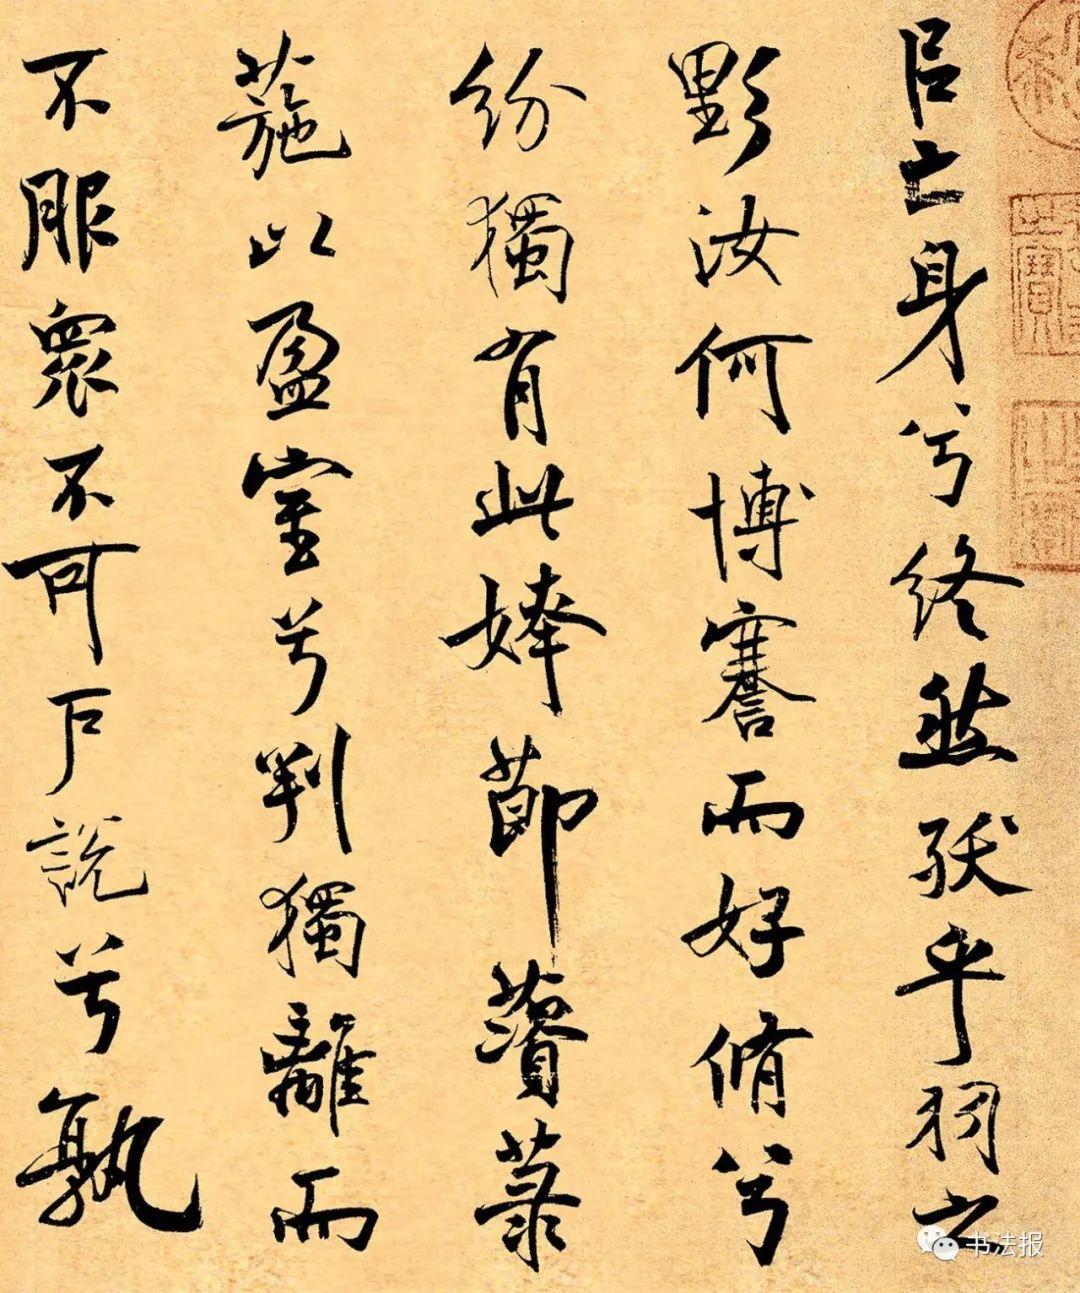 㠯亡身兮終然殀乎羽之
野汝何博謇而好脩兮
紛獨有此姱節薋菉
葹以盈室兮判獨離而
不服衆不可戶說兮孰
书法报